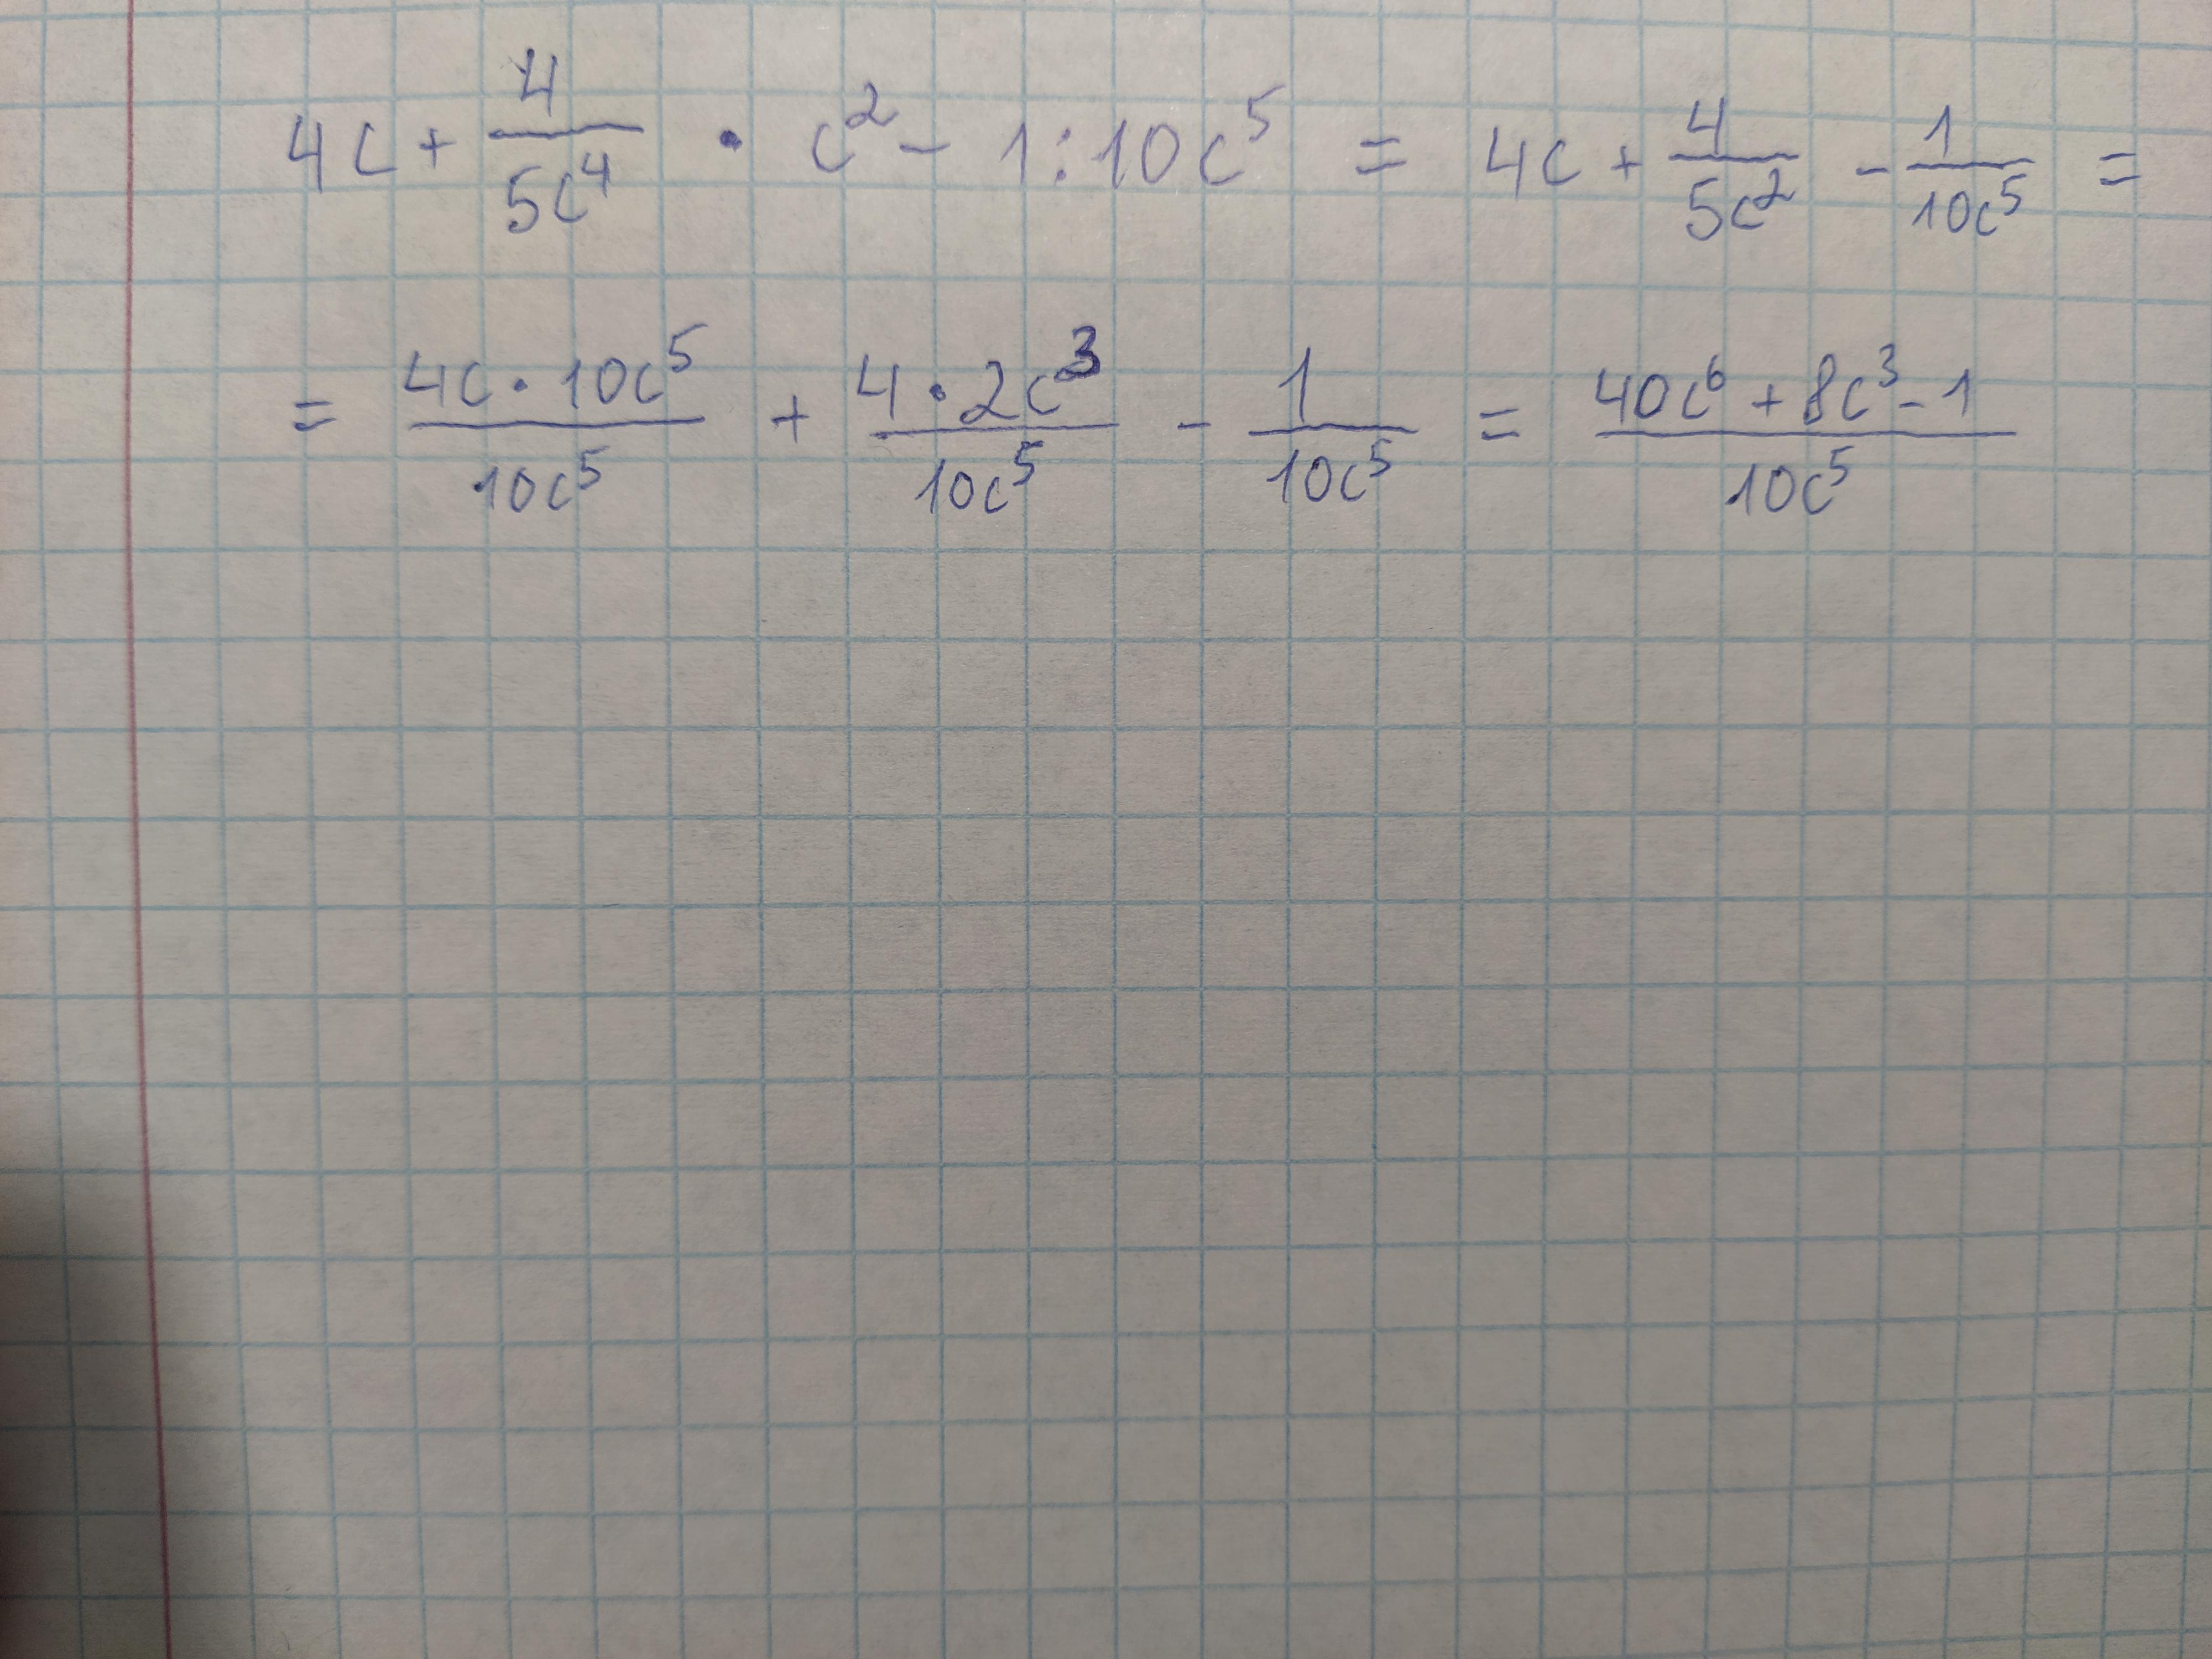 4c + \frac{4}{5c^4} \cdot c^2 - 1 : 10c^5 = 4c + \frac{4}{5c^2} - \frac{1}{10c^5} =
= \frac{4c \cdot 10c^5}{10c^5} + \frac{4 \cdot 2c^3}{10c^5} - \frac{1}{10c^5} = \frac{40c^6 + 8c^3 - 1}{10c^5}